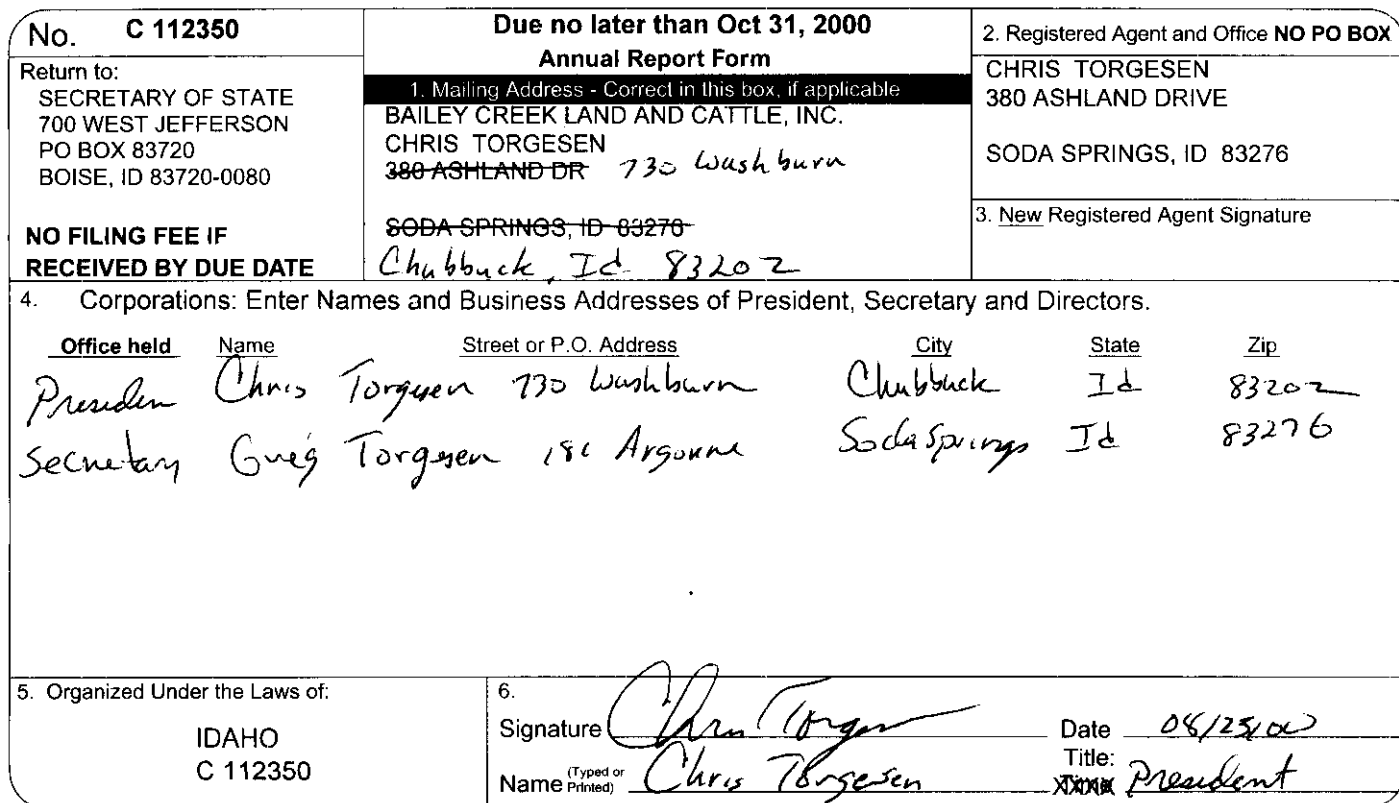 No. C 112350
Return to:
SECRETARY OF STATE
700 WEST JEFFERSON
PO BOX 83720
BOISE, ID 83720-0080
NO FILING FEE IF
RECEIVED BY DUE DATE
Due no later than Oct 31, 2000
Annual Report Form
1. Mailing Address - Correct in this box, if applicable
BAILEY CREEK LAND AND CATTLE, INC.
CHRIS TORGESEN
380 ASHLAND DR 730 Washburn
SODA SPRINGS, ID 83276
Chubbuck, Id 83202
2. Registered Agent and Office NO PO BOX
CHRIS TORGESEN
380 ASHLAND DRIVE
SODA SPRINGS, ID 83276
3. New Registered Agent Signature
4. Corporations: Enter Names and Business Addresses of President, Secretary and Directors.
Office held Name Street or P.O. Address City State Zip
Presiden Chris Torgesen 730 Washburn Chubbuck Id 83202
Secretary Greg Torgesen Argonne Soda Springs Id 83276
5. Organized Under the Laws of:
IDAHO
C 112350
6.
Signature Chris Torgesen Date
Name (Typed or Printed) Chris Torgesen Title: President